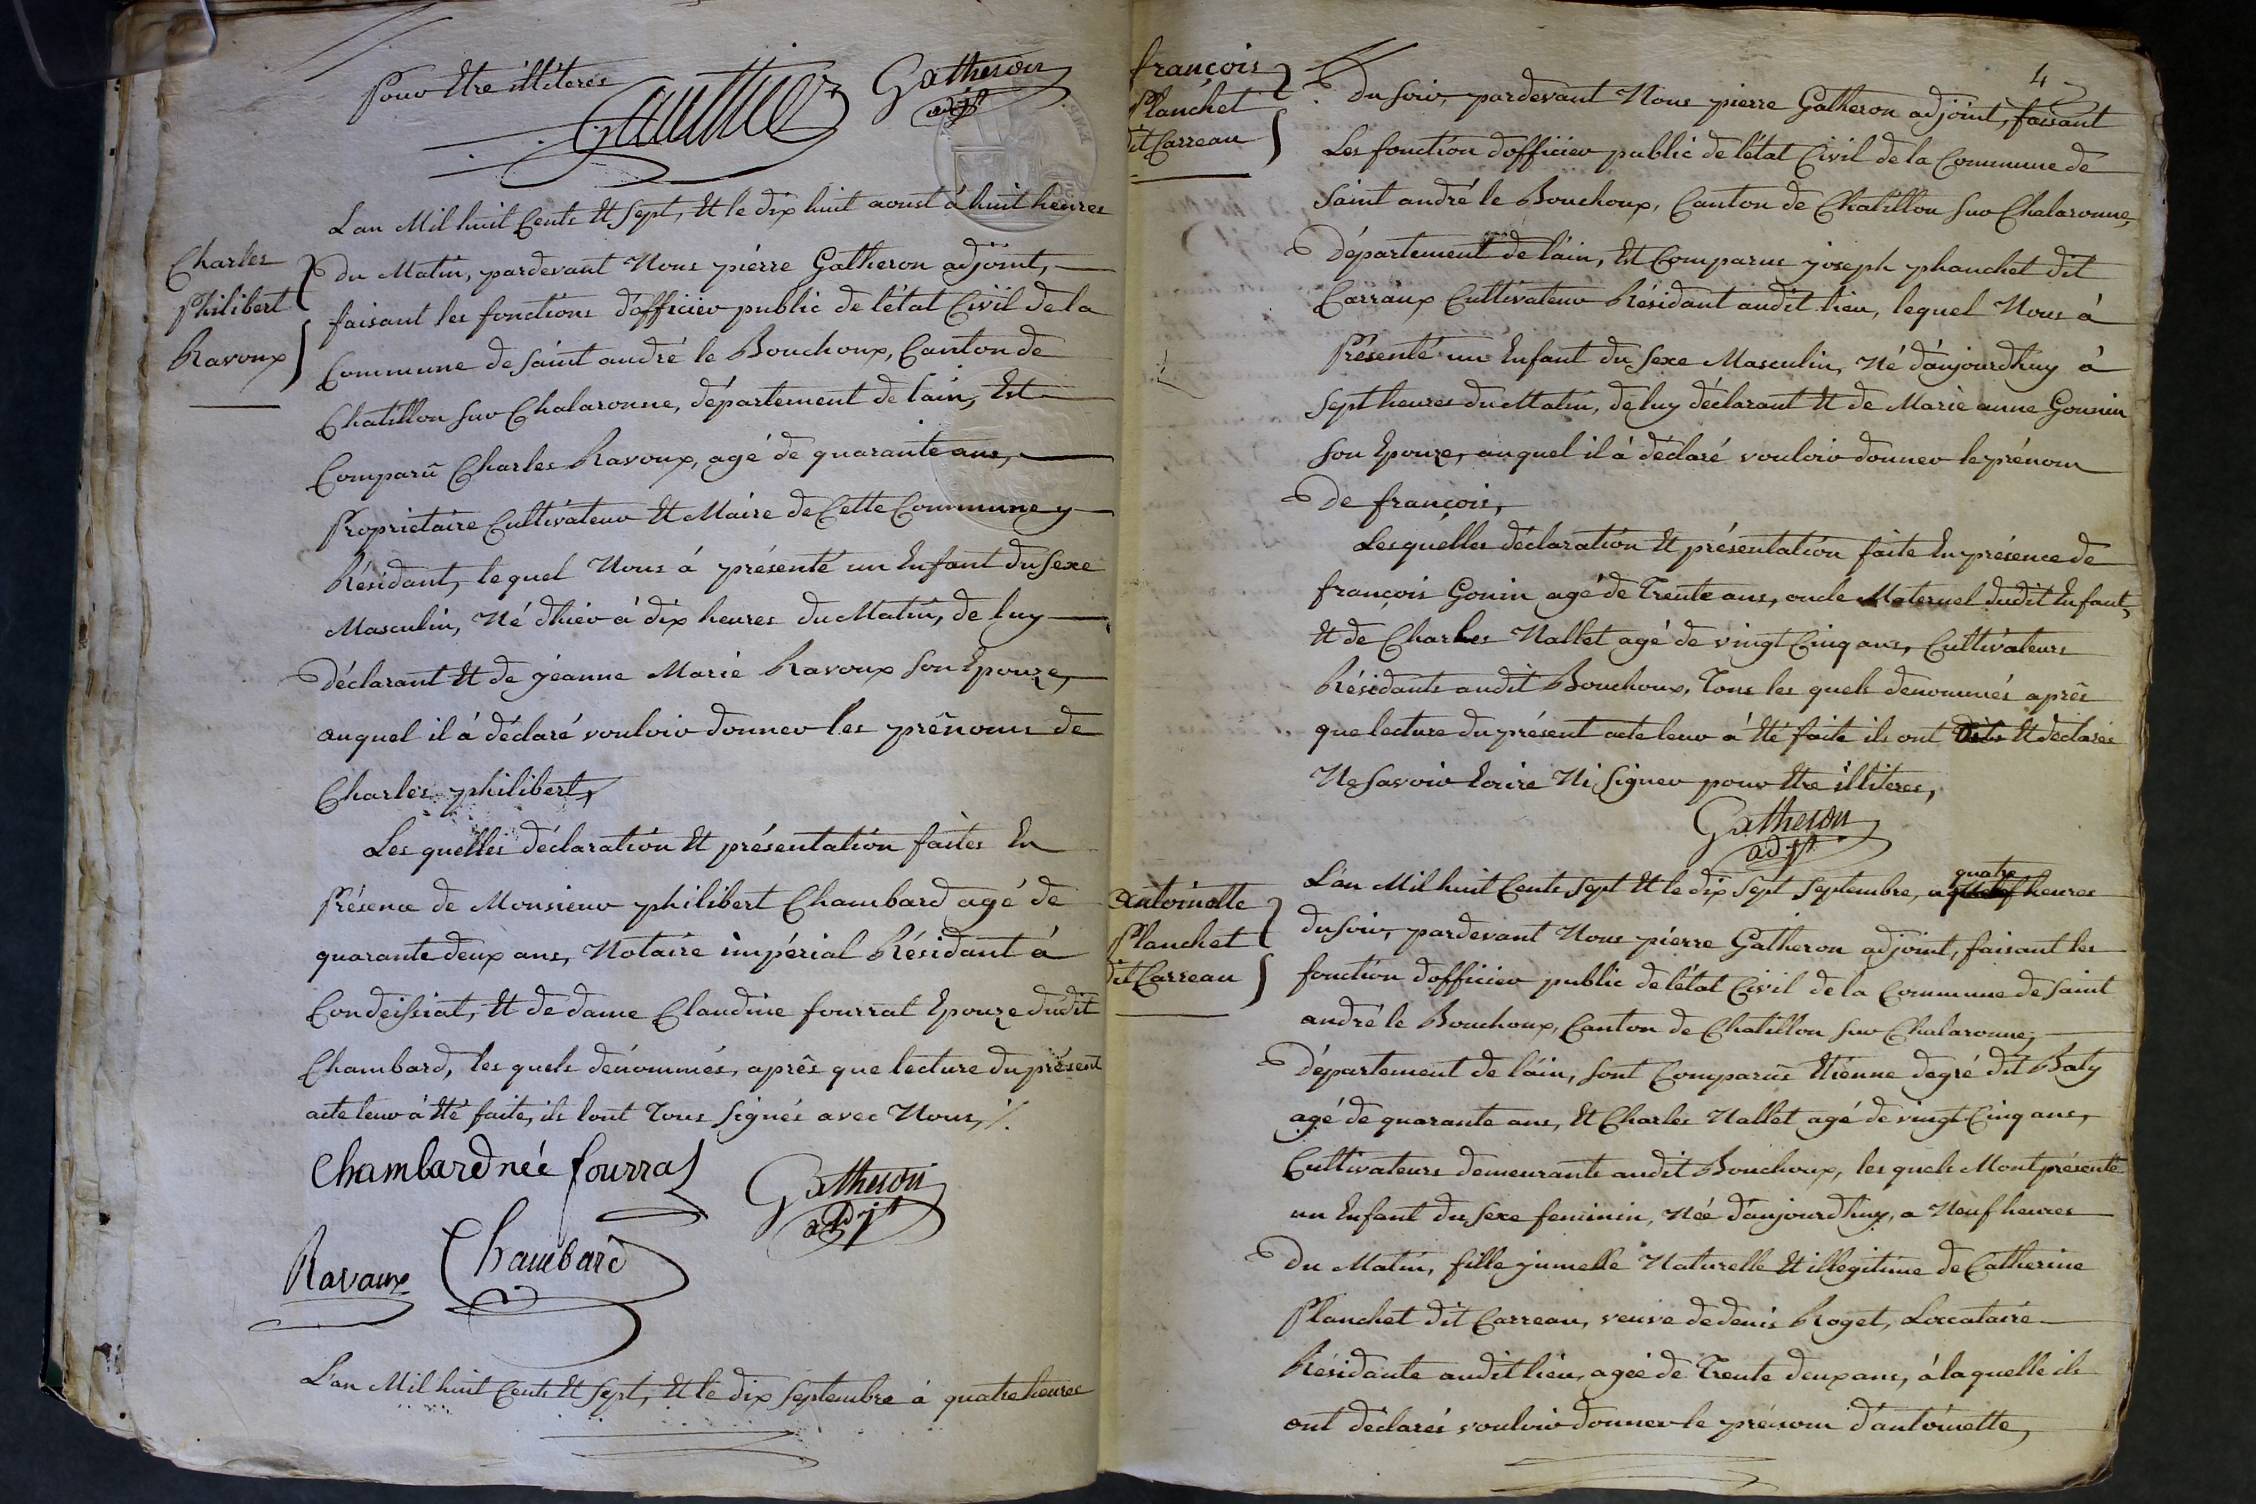 pour Etre illiteres
Gauthier
Gatheron
adjt
Charles
Philibert
Ravoux
L'an Mil huit Cents Et Sept, Et le dix huit aoust à huit heures
du Matin, pardevant Nous pierre Gatheron adjoint,
faisant les fonctions d'officier public de l'état Civil de la
Commune de Saint andré le Bouchoux, Canton de
Chatillon sur Chalaronne, département de l'ain, Est
Comparû Charles Ravoux, agé de quarante ans,
Proprietaire Cultivateur Et Maire de Cette Commune y
Résidant, lequel Nous à présenté un Enfant du Sexe
Masculin, Né d'hier à dix heures du Matin, de luy
déclarant Et de jéanne Marie Ravoux Son Epouze,
auquel il à déclaré vouloir donner les prénoms de
Charles philibert,
Les quelles déclaration Et présentation faites En
Présence de Monsieur philibert Chambard agé de
quarante deux ans, Notaire impérial Résidant à
Condeissiat, Et de dame Claudine fourrat Epouze dudit
Chambard, les quels dénommés, après que lecture du présent
acte leur à Eté faite, ils l'ont Tous Signés avec Nous, /.
Chambard née fourrat
Gatheron
adjt
Ravoux
Chambard
L'an Mil huit Cents Et Sept, Et le dix Septembre à quatre heures
4
françois
Planchet
dit Carreau
du Soir, pardevant Nous pierre Gatheron adjoint, faisant
Les fonction d'officier public de l'état Civil de la Commune de
Saint andré le Bouchoux, Canton de Chatillon sur Chalaronne,
Département de l'ain, Est Comparus joseph phanchet dit
Carraux Cultivateur Résidant audit lieu, lequel Nous à
Présenté un Enfant du Sexe Masculin, Né d'aujourdhuy à
Sept heures du Matin, de luy déclarant Et de Marie anne Gounin
Son Epouze, auquel il à déclaré vouloir donner le prénom
de françois,
Lesquelles déclaration Et présentation faite En présence de
françois Gonin agé de Trente ans, oncle Maternel dudit Enfant,
Et de Charles Nallet agé de vingt Cinq ans, Cultivateurs
Résidants audit Bouchoux, Tous les quels dénommés après
que lecture du présent acte leur à Eté faite ils ont dits Et déclarés
Ne Savoir Ecrire Ni Signer pour Etre illiteres,
Gatheron
adjt
Antoinette
Planchet
dit Carreau
L'an Mil huit Cents Sept Et le dix Sept Septembre, a quatre heures
du Soir, pardevant Nous pierre Gatheron adjoint, faisant les
fonction d'officier public de l'état Civil de la Commune de Saint
andré le Bouchoux, Canton de Chatillon sur Chalaronne,
Département de l'ain, Sont Comparûs Etienne degré dit Baty
agé de quarante ans, Et Charles Nallet agé de vingt Cinq ans,
Cultivateurs demeurants audit Bouchoux, les quels M'ont présenté
un Enfant du Sexe feminin, Née d'aujourdhuy, a Neuf heures
du Matin, fille jumelle Naturelle Et illegitime de Catherine
Planchet dit Carreau, veuve de denis Roget, Loccataire
Résidante audit lieu, agée de Trente deux ans, à laquelle ils
ont déclarés vouloir donner le prénom d'antoinette,